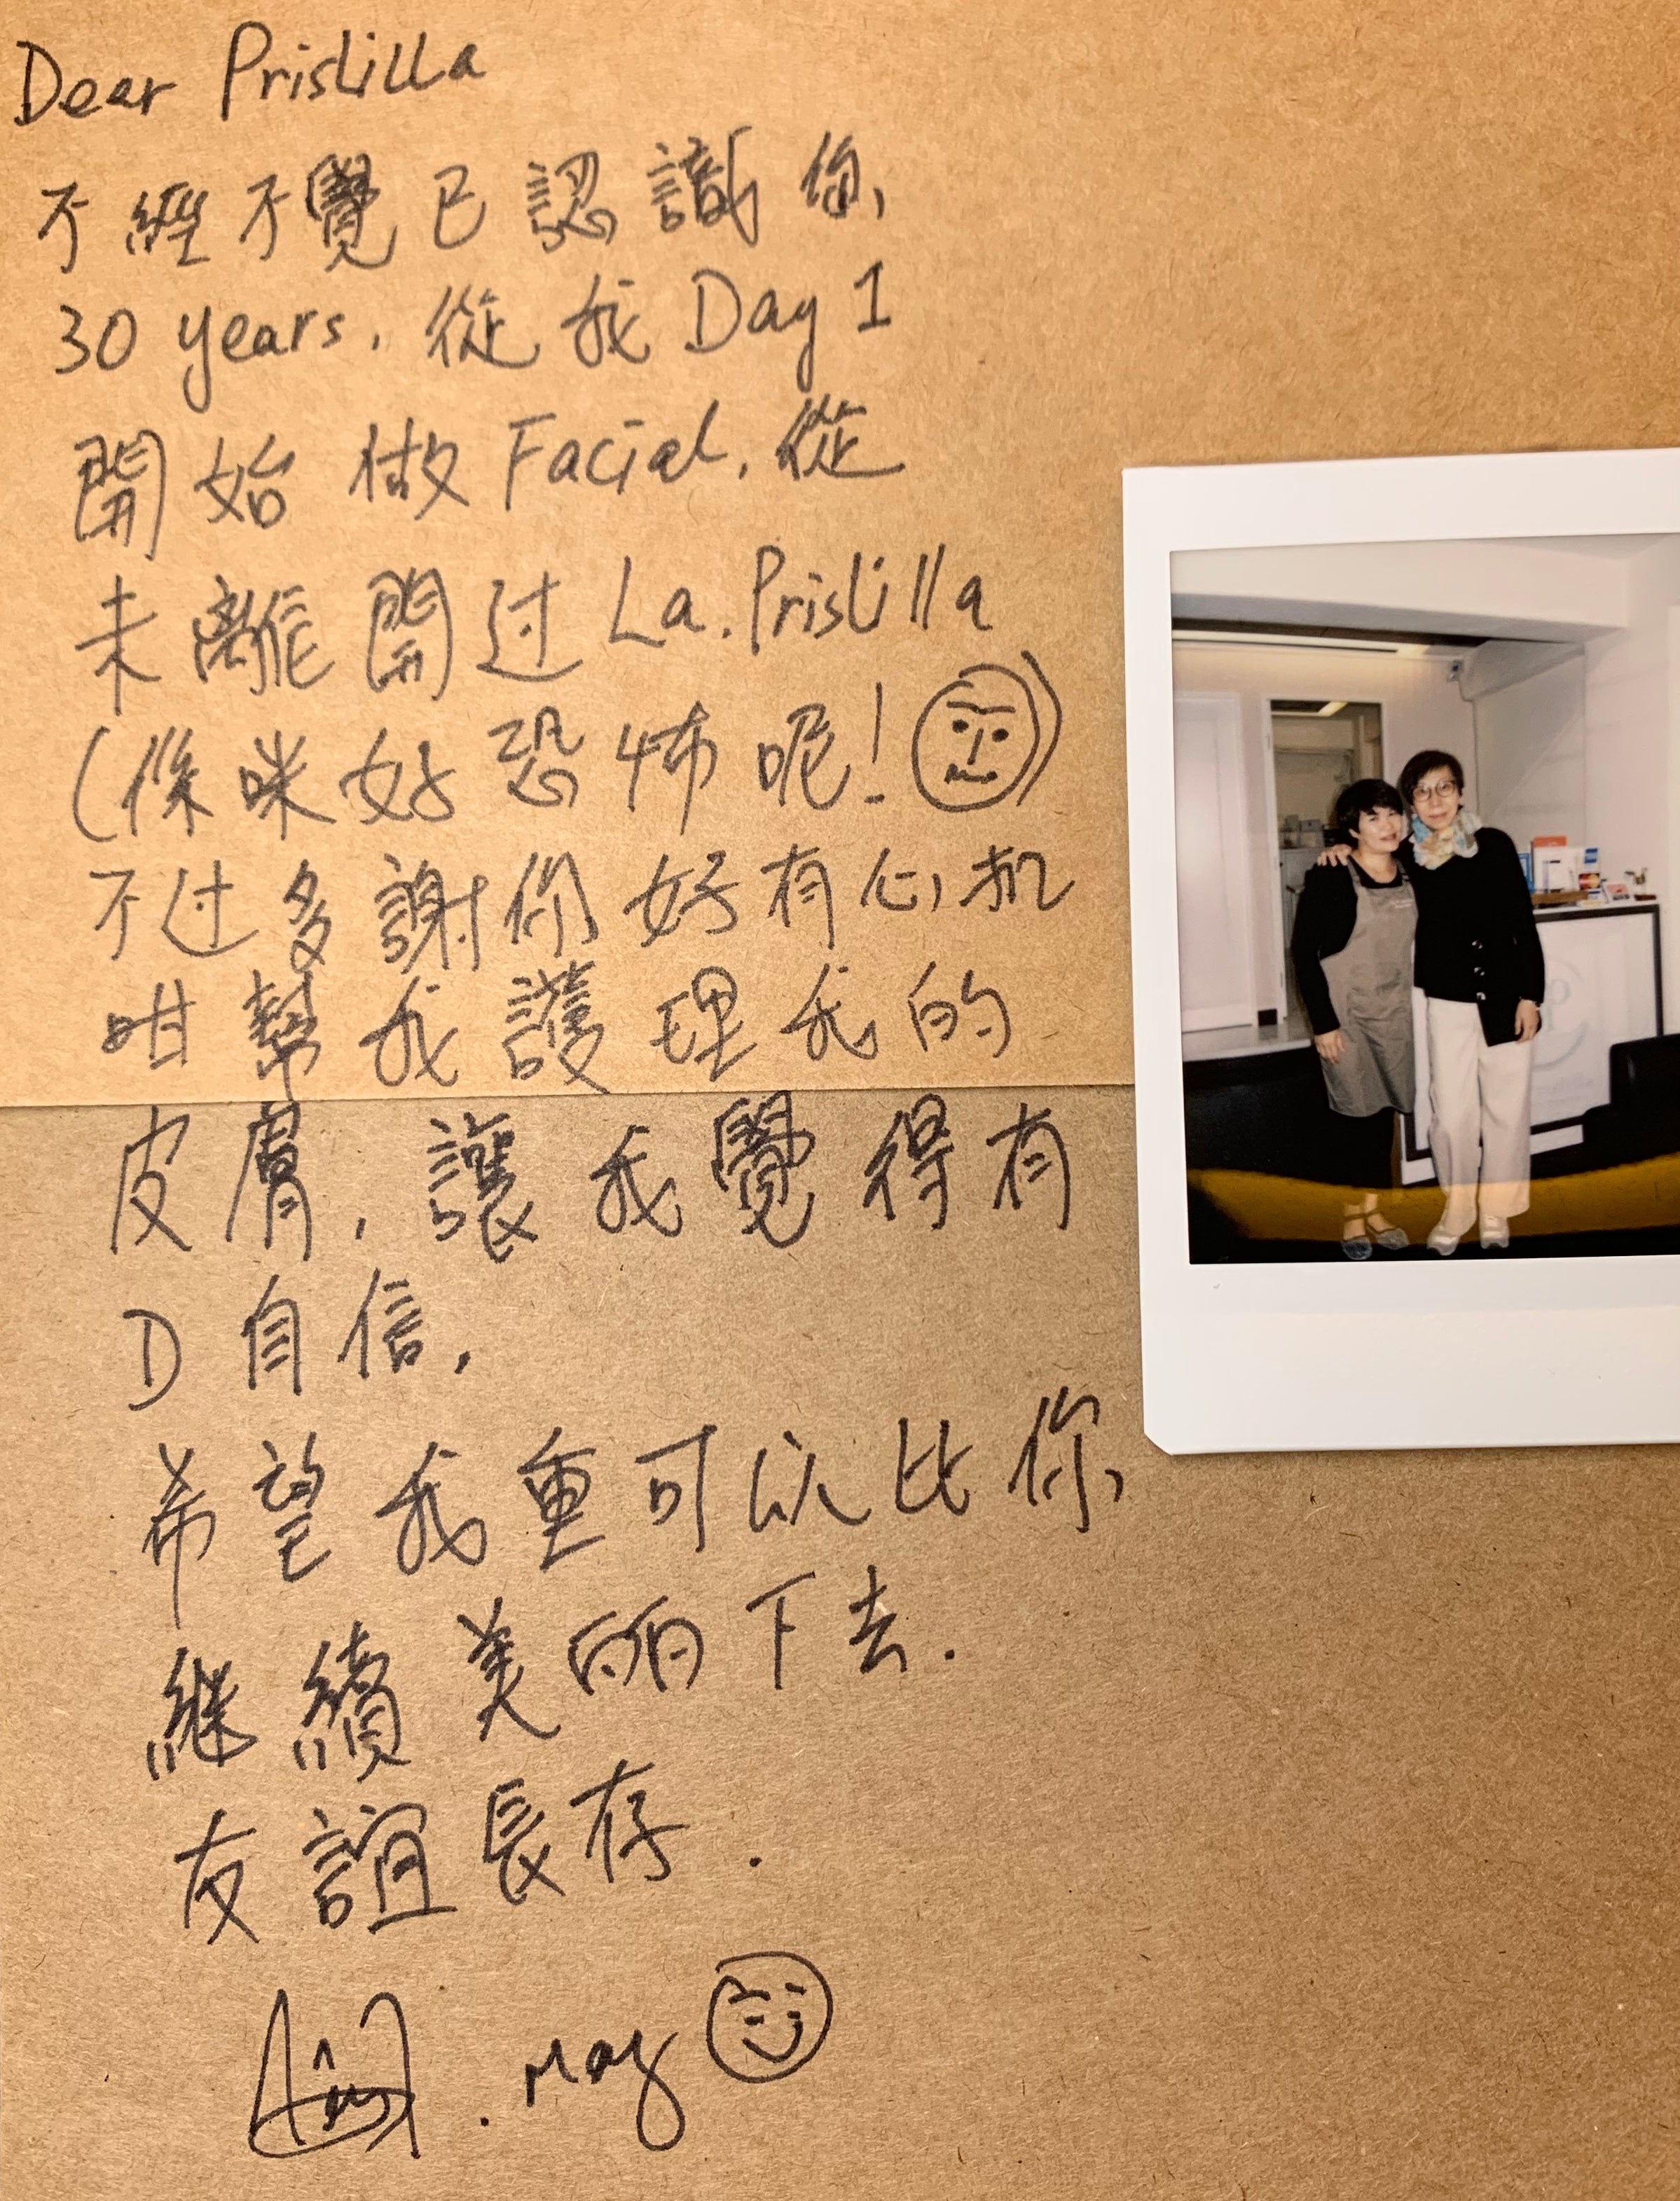 Dear Prislilla
不經不覺已認識你,
30 years, 從我 Day 1
開始 做 Facial, 從
未離開过 La.Prislilla
(係咪好恐怖呢!
不过多謝你好有心机
咁幫我護理我的
皮膚, 讓我覺得有
D自信,
希望我重可以比你
継續美丽下去.
友誼長存.
. May